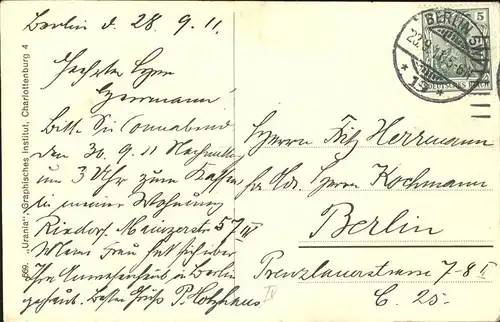 Berlin d. 28. 9. 11.
Geehrter Herr
Herrmann!
Bitte Sie Sonnabend
den 30. 9. 11 Nachmittag
um 3 Uhr zum Kaffee
in meiner Wohnung
Rixdorf. Mainzerstr 57 IV
Meine Frau hat sich über
Ihre Anwesenheit in Berlin
gefreut. Besten Gruß P.
Herrn Fritz Herrmann
Herrn Kochmann
Berlin
Prenzlauerstrasse 7-8 II
C. 25.
IV
569. „Urania“, Graphisches Institut, Charlottenburg 4
5
BERLIN SW
DEUTSCHES REICH